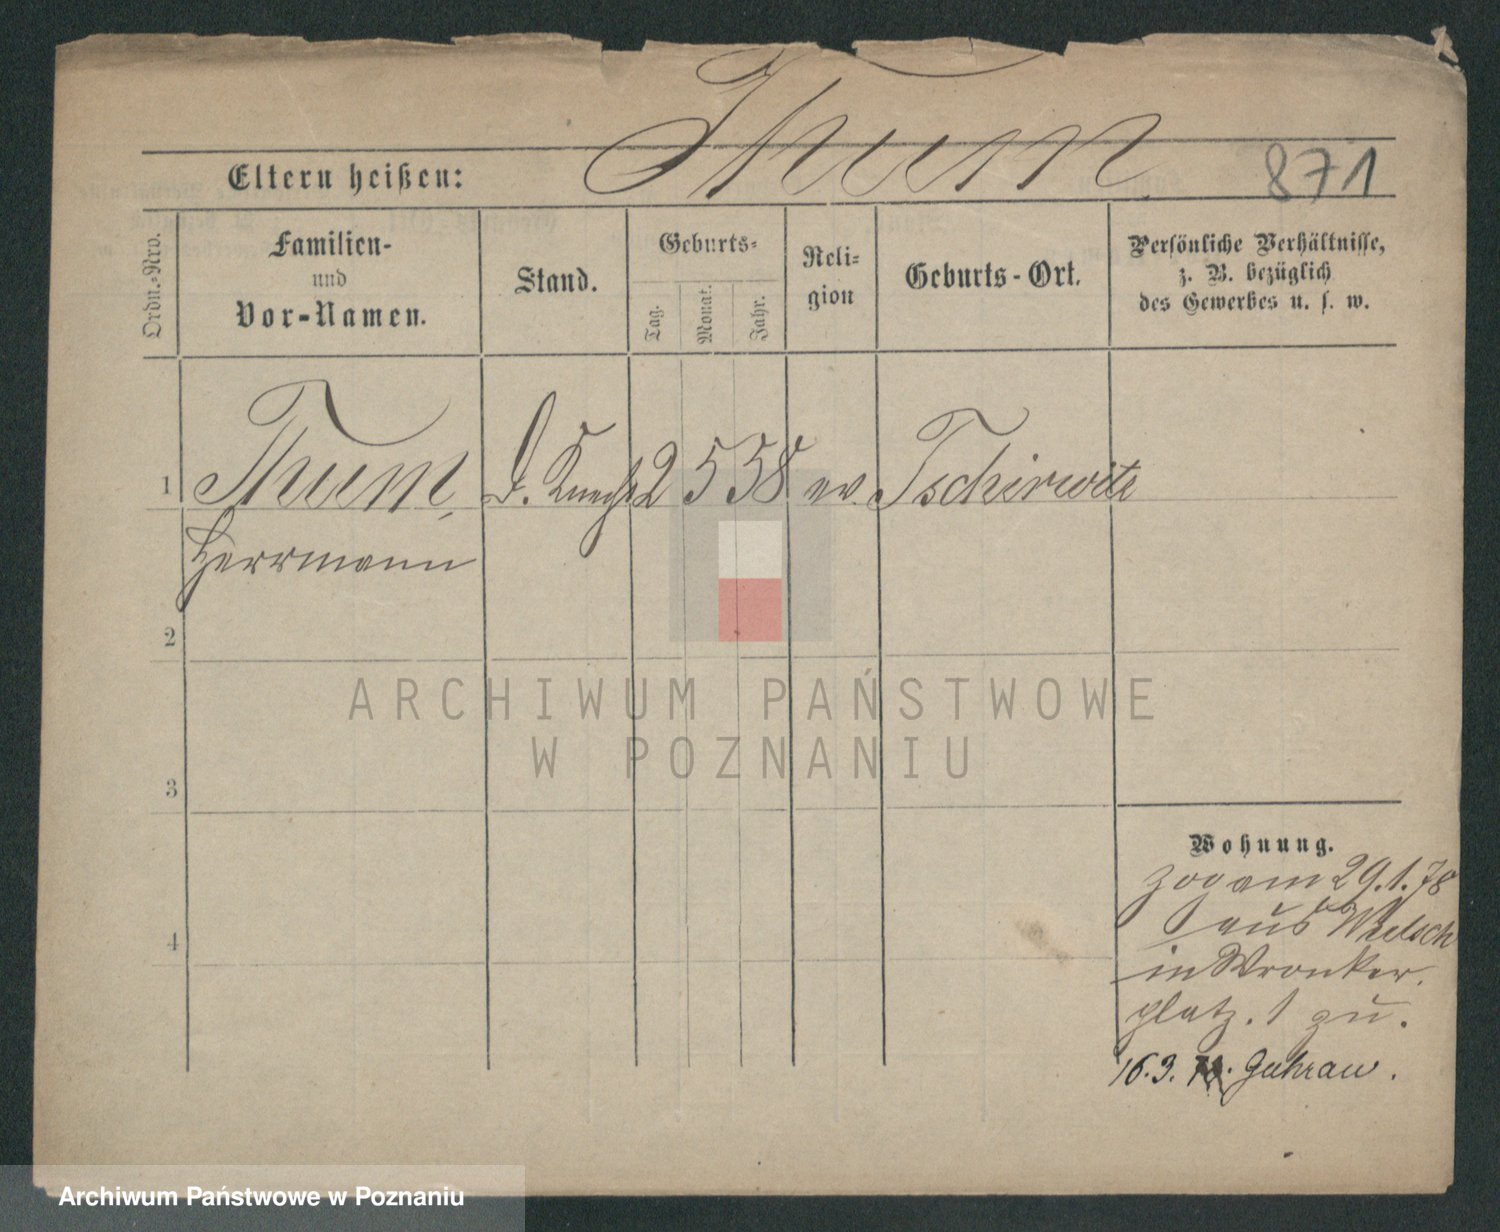 Thum
871
Eltern heißen:
Ordn.-Nro.
Familien-
und
Vor-Namen.
Stand.
Geburts-
Tag.
Monat.
Jahr.
Reli-
gion
Geburts-Ort.
Persönliche Verhältnisse,
z. B. bezüglich
des Gewerbes u. s. w.
1 Thum, D. Knecht 2 5 58 ev. Tschirwitz
Herrmann
2
3
4
Wohnung.
zog am 29.1.78
aus
in Wronker
platz. 1 zu.
16.3. 78. Guhrau.
ARCHIWUM PAŃSTWOWE
W POZNANIU
Archiwum Państwowe w Poznaniu